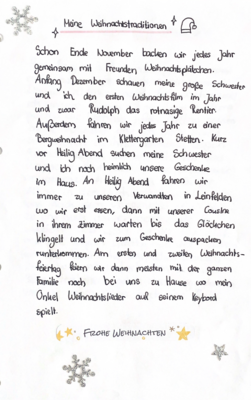 Meine Weihnachtstraditionen
Schon Ende November backen wir jedes Jahr
gemeinsam mit Freunden Weihnachtsplätzchen.
Anfang Dezember schauen meine große Schwester
und ich den ersten Weihnachtsfilm im Jahr
und zwar Rudolph das rotnasige Rentier.
Außerdem fahren wir jedes Jahr zu einer
Bergweihnacht im Klettergarten Stetten. Kurz
vor Heilig Abend suchen meine Schwester
und ich noch heimlich unsere Geschenke
im Haus. An Heilig Abend fahren wir
immer zu unseren Verwandten in Leinfelden
wo wir erst essen, dann mit unserer Cousine
in ihrem Zimmer warten bis das Glöckchen
klingelt und wir zum Geschenke auspacken
runterkommen. Am ersten und zweiten Weihnachts-
feiertag feiern wir dann meisten mit der ganzen
Familie noch bei uns zu Hause wo mein
Onkel Weihnachtslieder auf seinem Keyboard
spielt.
FROHE WEIHNACHTEN